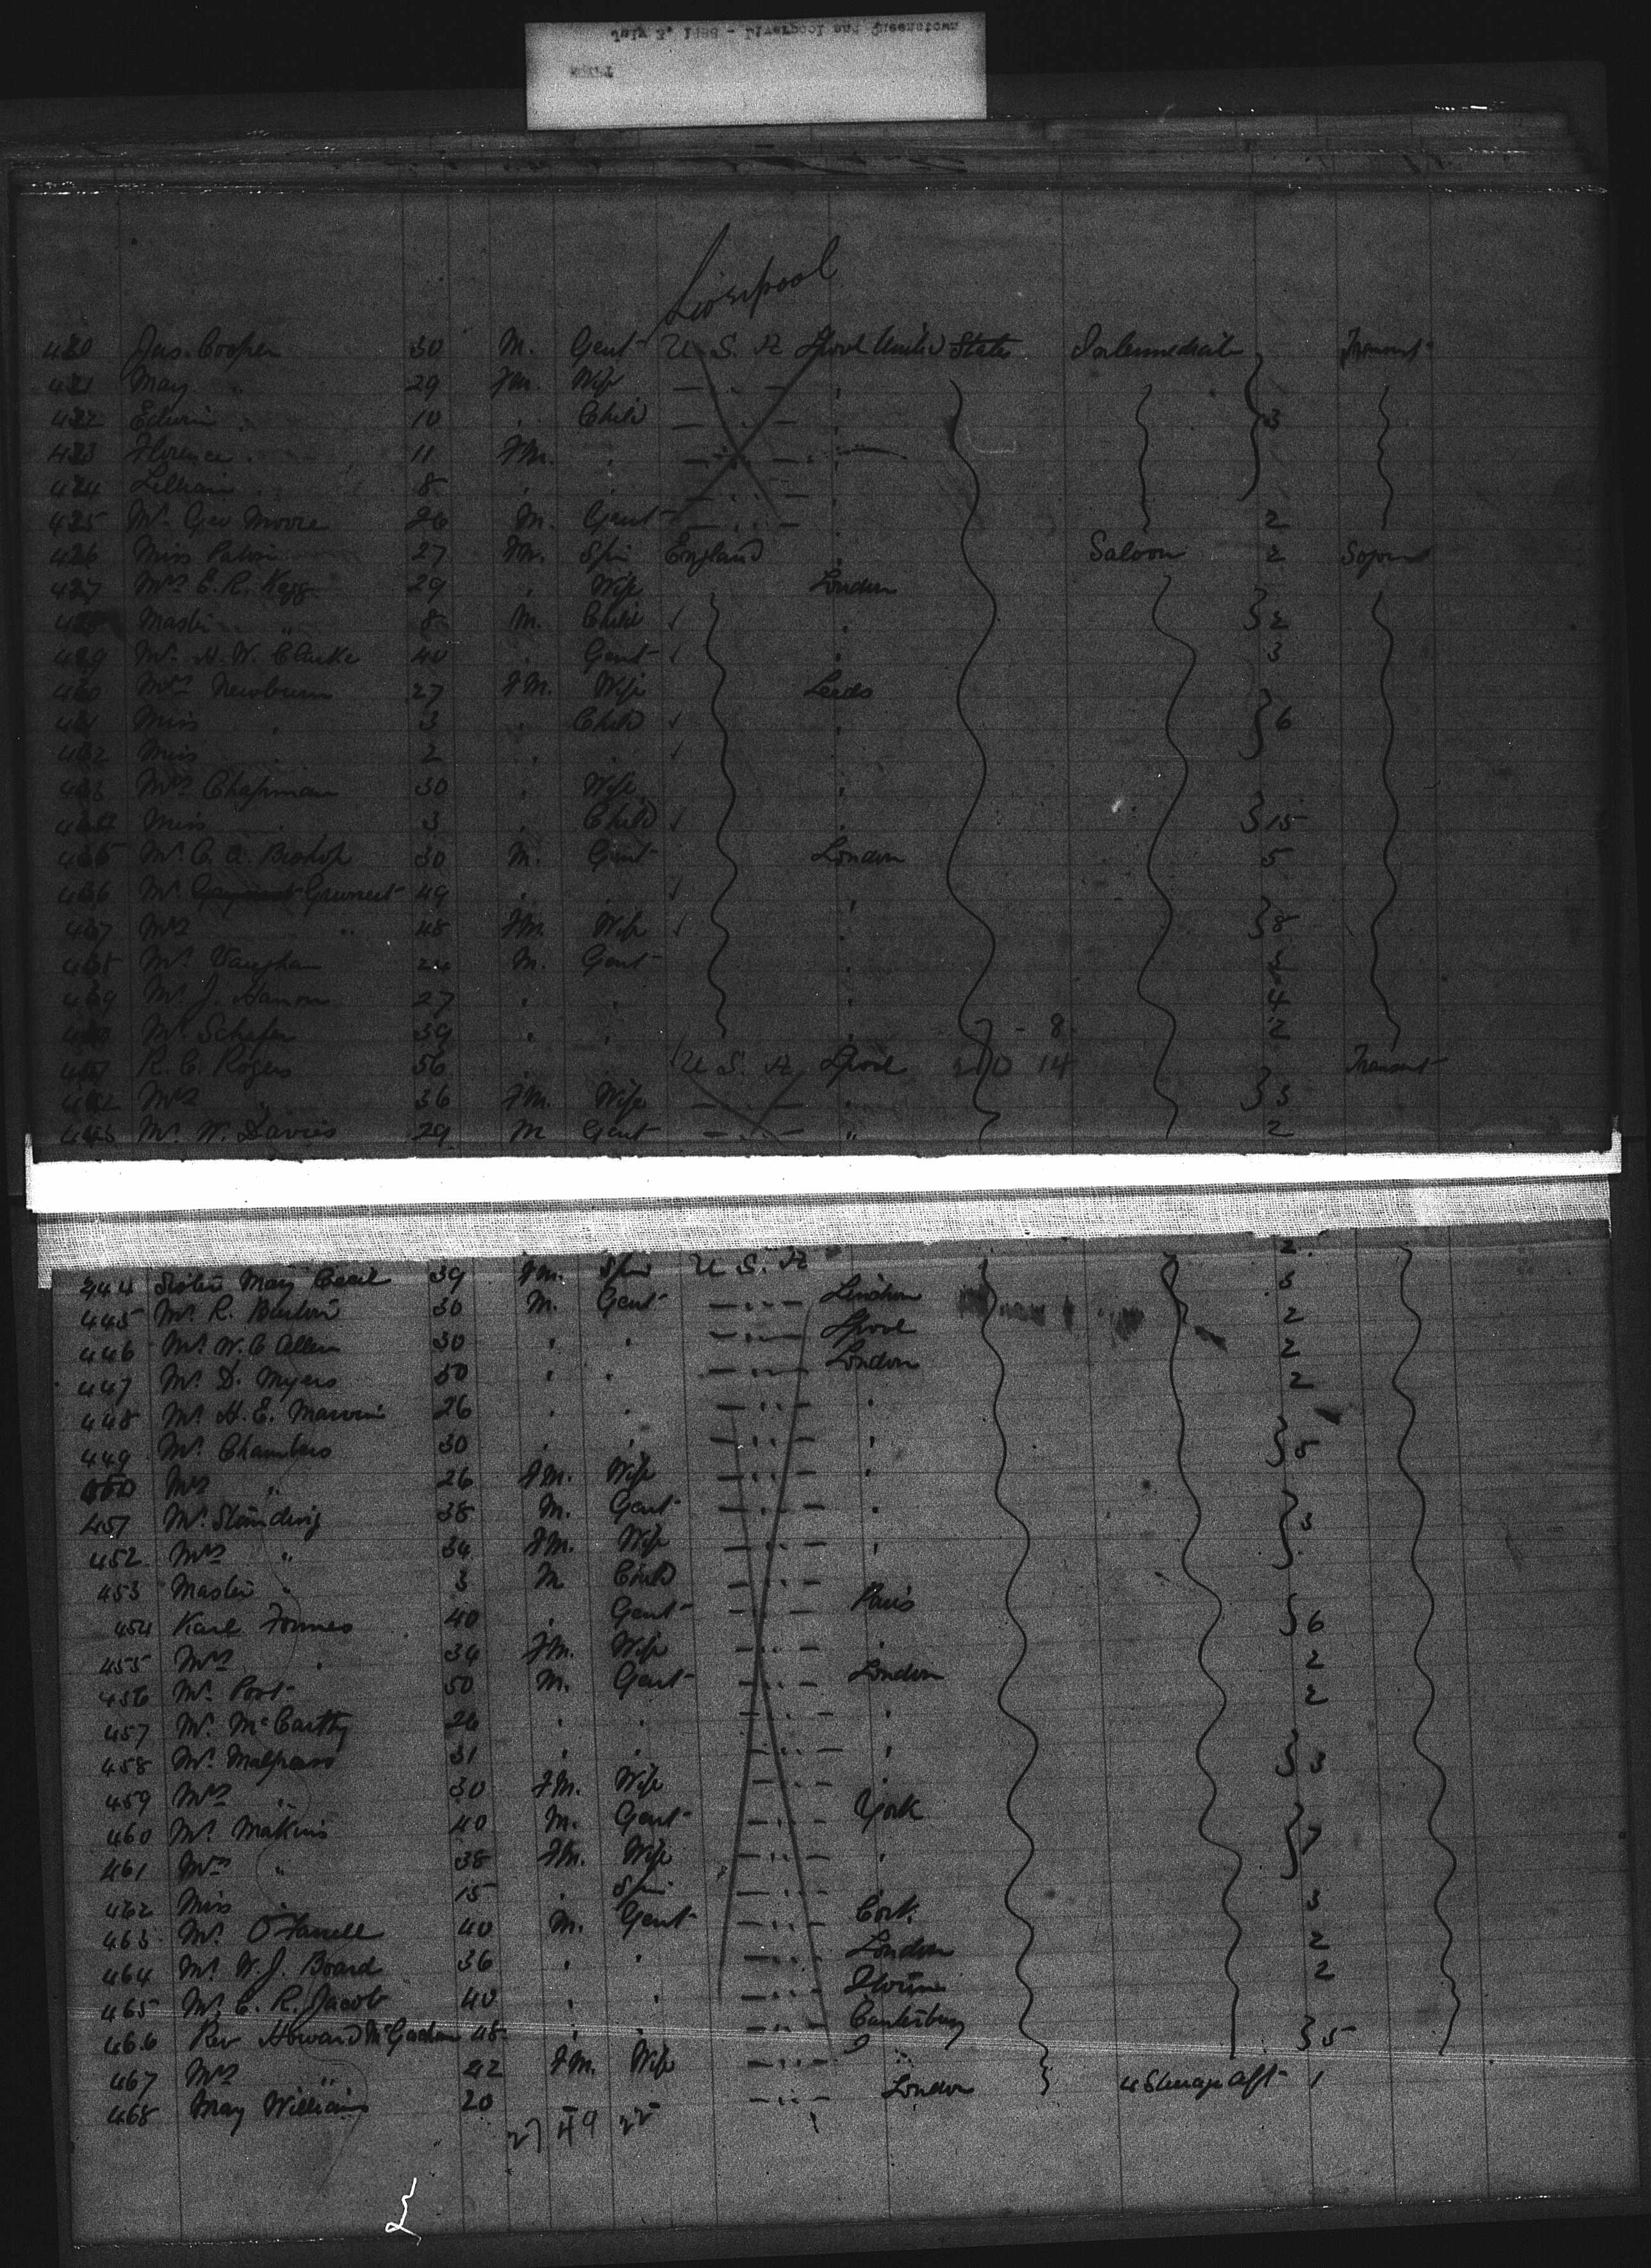 July 3, 1888 - Liverpool and Queenstown
Liverpool
420 Jas. Cooper 30 M. Gent U. S. A Lpool United States Intermediate
421 May " 29 FM. Wife
422 Edwin " 10 " Child 3
423 Florence " 11 FM. "
424 Lillian " 8 " "
425 Mr. Geo Moore 26 M. Gent 2
426 Miss Paton 27 FM. Spin England Saloon 2 Sojourn
427 Mrs E. R. Kegg 29 " Wife London
428 Master " 8 M. Child 2
429 Mr. H. W. Clarke 40 " Gent 3
430 Mrs Newburn 27 FM. Wife Leeds
431 Miss " 3 " Child 6
432 Miss " 2 " "
433 Mrs Chapman 30 " Wife
434 Miss " 3 " Child 15
435 Mr. C. A. Bishop 30 M. Gent London 5
436 Mr. 49 "
437 Mrs " 48 FM. Wife 8
438 Mr. Vaughan M. Gent
439 Mr. J. Hanon 27 " " 4
440 Mr. Schafer 39 " " - 8 2
441 R. C. Rogers 56 U. S. A Lpool 14 Transient
442 Mrs " 36 FM. Wife 3
443 Mr. W. Davies 29 M Gent " 2
2
444 Sister Mary Cecil 39 FM. Spin U. S. A 3
445 Mr. R. Burton 30 M. Gent London 2
446 Mr. W. C Allen 30 " " Lpool 2
447 Mr. D. Myers 50 " " London 2
448 Mr. H. E. Marvin 26 " "
449 Mr. Chambers 30 " " 5
450 Mrs " 26 FM. Wife
451 Mr. 38 M. Gent 3
452 Mrs " 34 FM. Wife
453 Master " 3 M Child
454 Karl Formes 40 " Gent Paris 6
455 Mrs " 34 FM. Wife 2
456 Mr. Port 50 M. Gent London 2
457 Mr. McCarthy 26 " "
458 Mr. Malpass 31 " " 3
459 Mrs " 30 FM. Wife
460 Mr. Makins 40 M. Gent York 7
461 Mrs " 38 FM. Wife
462 Miss " 15 " Spin 3
463 Mr. O'Farrell 40 M. Gent Cork 2
464 Mr. W. J. Board 36 " " London 2
465 Mr. C. R. Jacob 40 " "
466 Rev Howard McGachan 45 " " Canterbury 5
467 Mrs " 42 FM. Wife
468 May Williams 20 London Steerage Aft 1
27 49 22